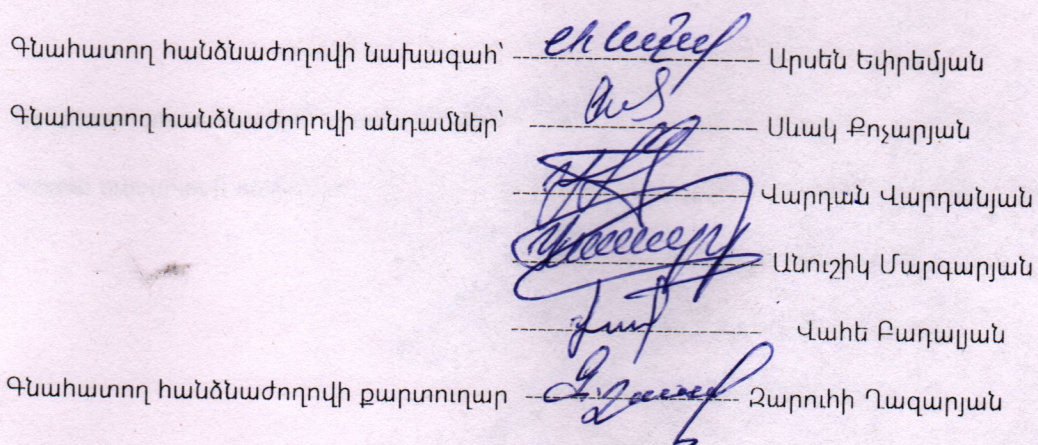 Գնահատող հանձնաժողովի նախագահ՝ Արսեն Եփրեմյան
Գնահատող հանձնաժողովի անդամներ՝ Սևակ Քոչարյան
Վարդան Վարդանյան
Անուշիկ Մարգարյան
Վահե Բադալյան
Գնահատող հանձնաժողովի քարտուղար Զարուհի Ղազարյան